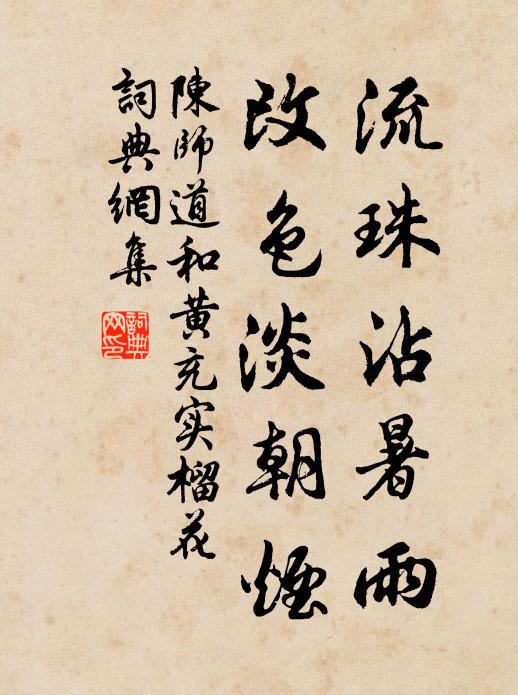 流珠沾暑雨
改色淡朝煙
陳師道和黄充实榴花
詞典網集
詞典網印